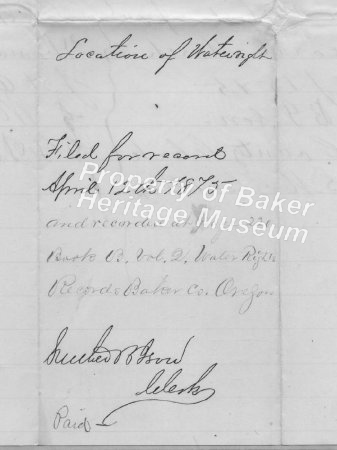 Location of Waterright
Filed for record
April 12th 1875
and recorded at
Book B, Vol. 2, Water Rights
Records Baker Co. Oregon
Clerk
Paid —
Property of Baker
Heritage Museum